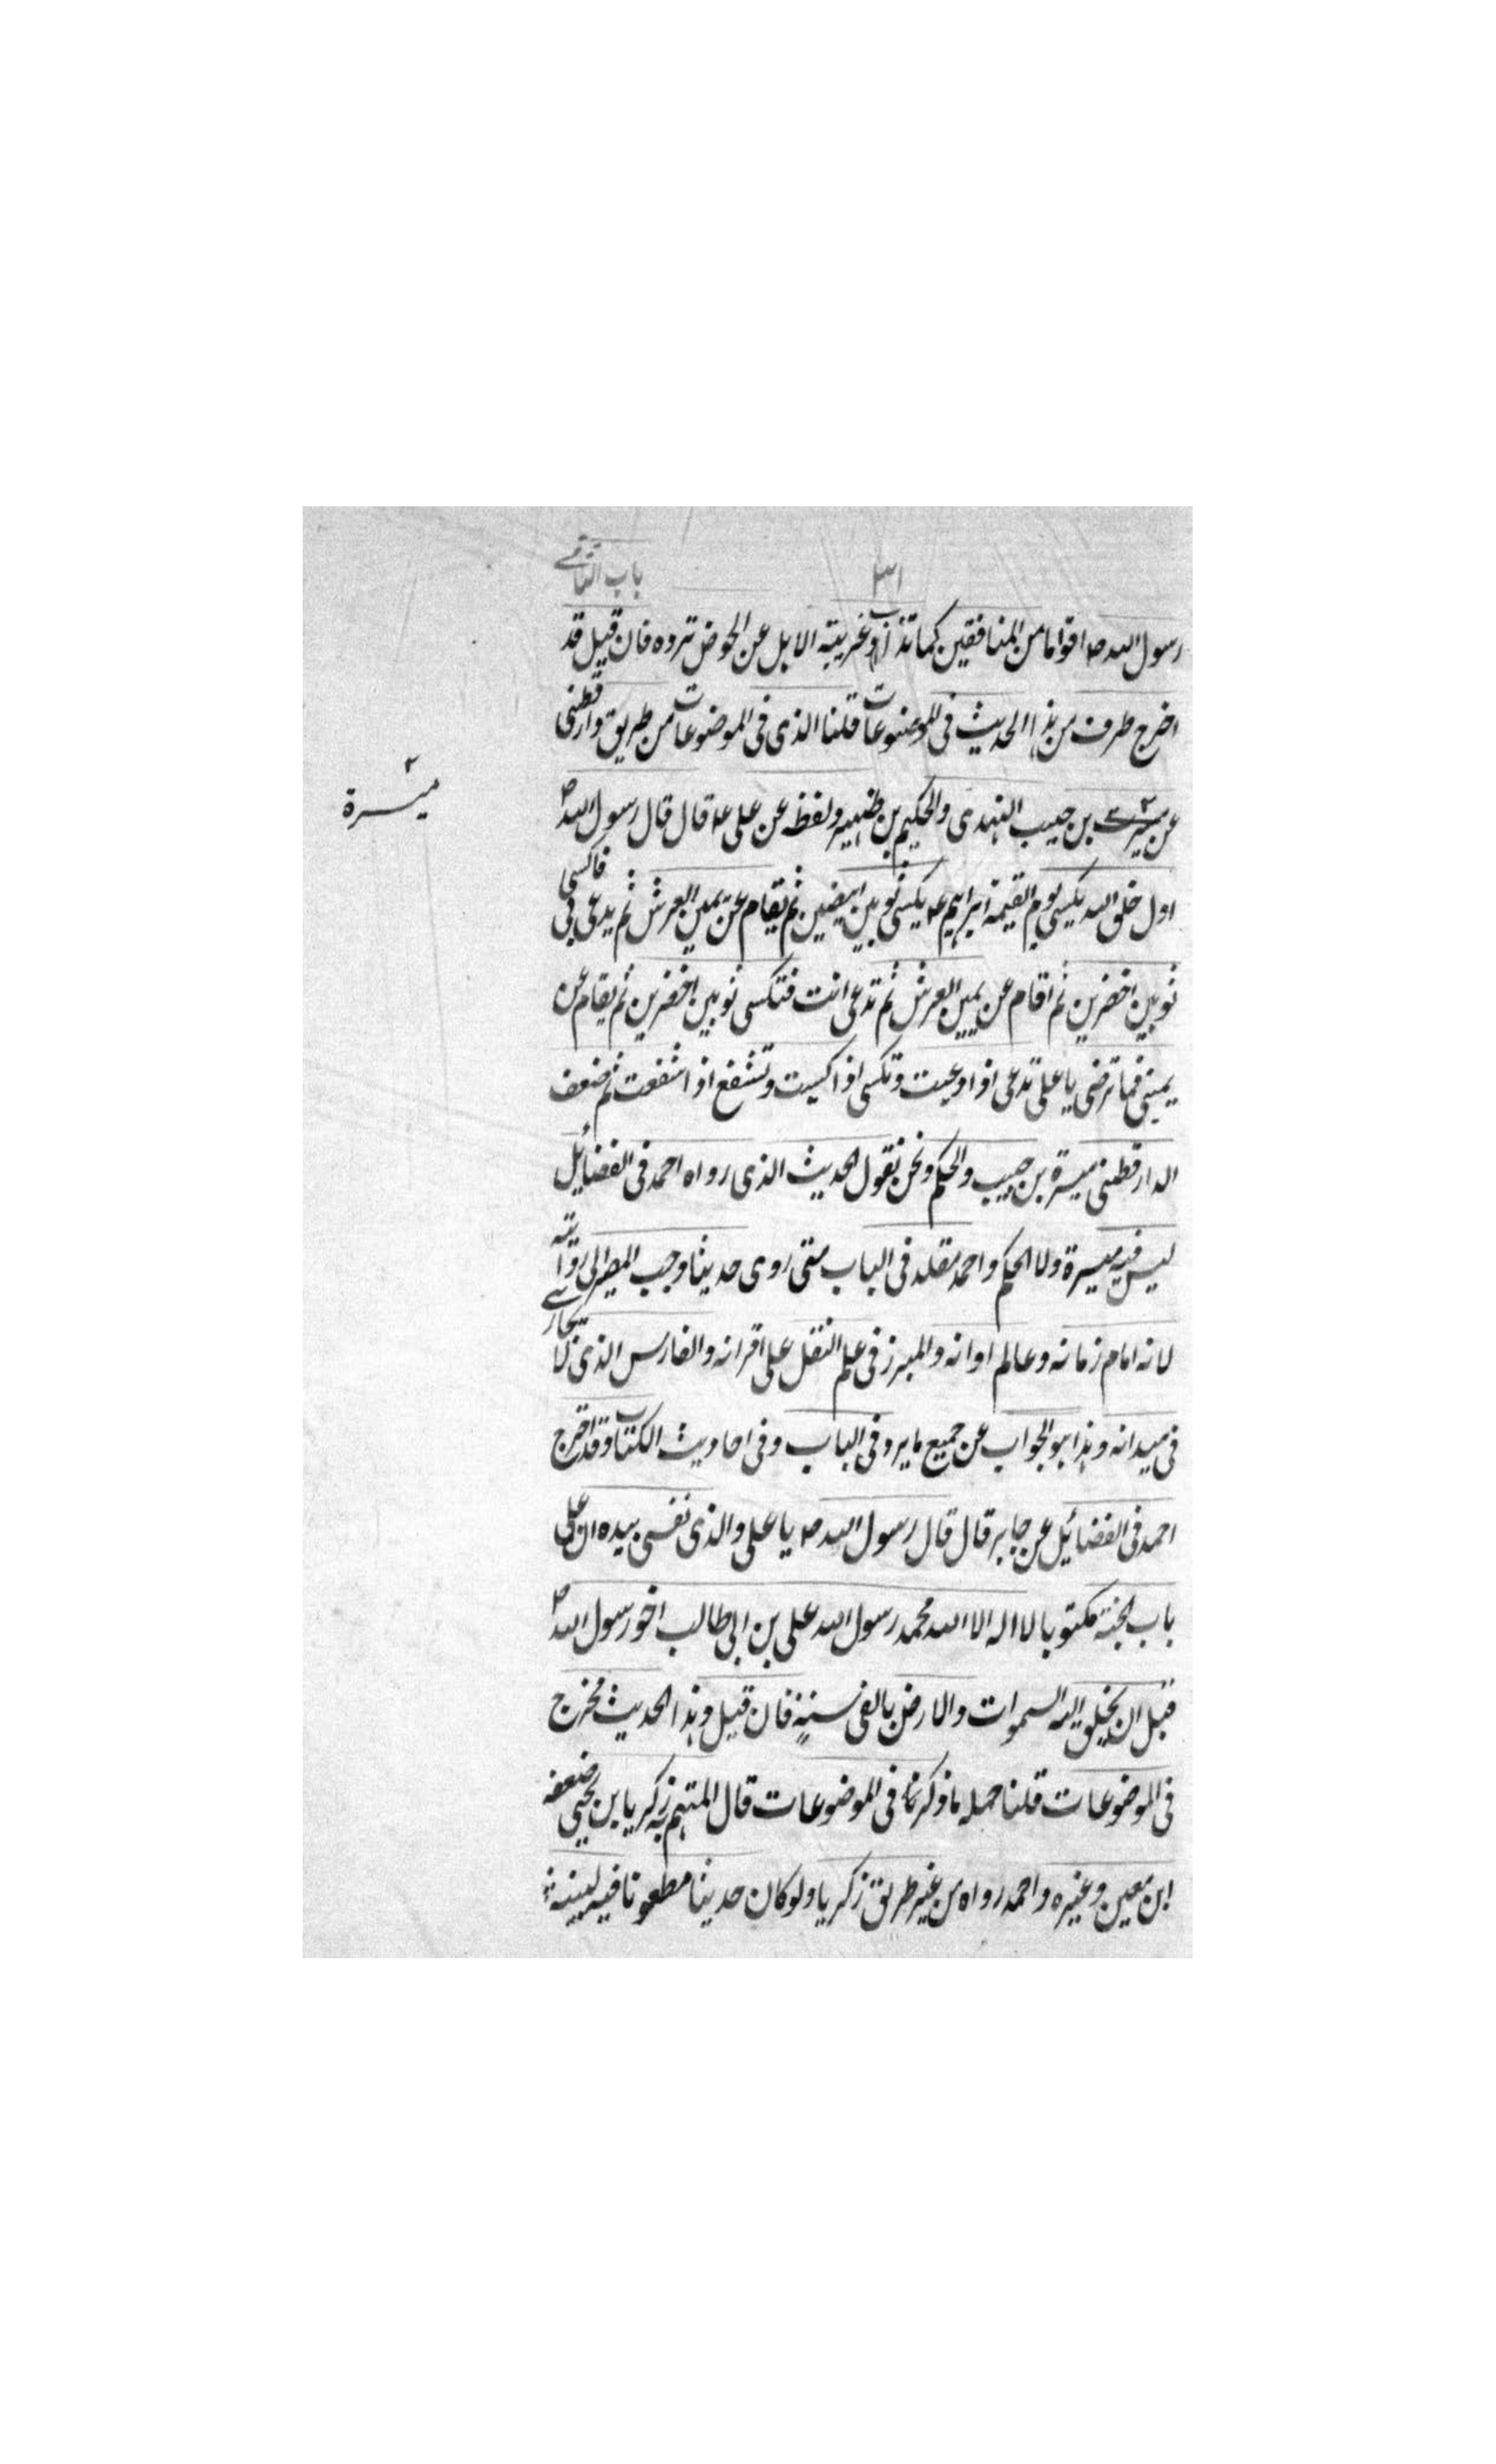 باب الثانی
رسول الله ص اقواما من المنافقین کما تذاب غریبة الابل عن الحوض ترده فان قیل قد
اخرج طرف من هذا الحدیث فی الموضوعات قلنا الذی فی الموضوعات من طریق دارقطنی
عن میسرة بن حبیب النهدی والحکیم بن ظهیر ولفظه عن علی ع قال قال رسول الله ص
میسرة
اول خلق الله یکسی یوم القیمة ابراهیم ع یکسی ثوبین ابیضین ثم یقام عن یمین العرش ثم یدعی بی فاکسی
ثوبین اخضرین ثم اقام عن یمین العرش ثم تدعی انت فتکسی ثوبین اخضرین ثم یقام عن
یمینی فما ترضی یا علی تدعی اذا دعیت وتکسی اذا کسیت وتشفع اذا شفعت ثم ضعف
الدارقطنی میسرة بن حبیب والحکم ونحن نقول الحدیث الذی رواه احمد فی الفضائل
لیس فیه میسرة ولا الحکم واحمد مقلد فی الباب متی روی حدیثا وجب المصیر الی روایته
لانه امام زمانه وعالم اوانه والمبرز فی علم النقل علی اقرانه والفارس الذی لا یجاری
فی میدانه وهذا هو الجواب عن جمیع ما یرد فی الباب وفی احادیث الکتاب وقد اخرج
احمد فی الفضائل عن جابر قال قال رسول الله ص یا علی والذی نفسی بیده ان علی
باب الجنة مکتوبا لا اله الا الله محمد رسول الله علی بن ابی طالب اخو رسول الله ص
قبل ان یخلق الله السموات والارض بالفی سنة فان قیل وهذا الحدیث مخرج
فی الموضوعات قلنا جمله ما ذکرتم فی الموضوعات قال المتهم به زکریا بن یحیی ضعفه
ابن معین وغیره واحمد رواه من غیر طریق زکریا ولو کان حدیثا مطعونا فیه لبینه